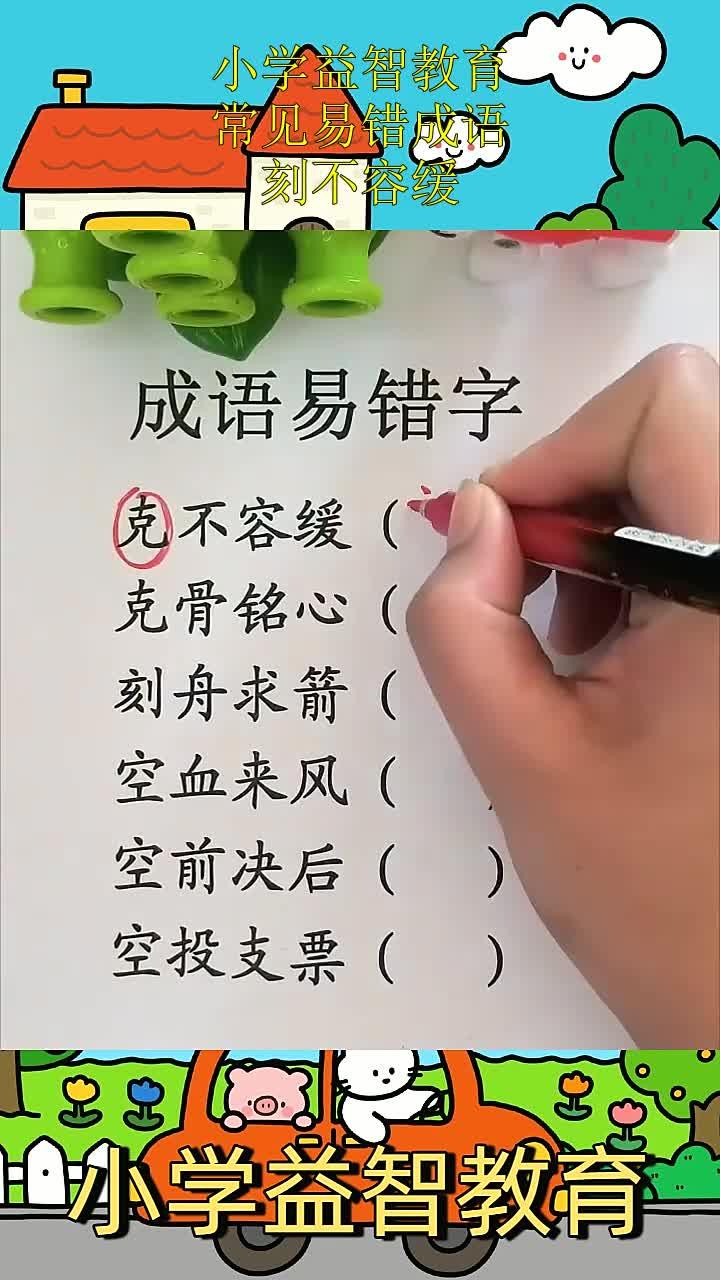 小学益智教育
常见易错成语
刻不容缓
成语易错字
克不容缓(
克骨铭心(
刻舟求箭(
空血来风(
空前决后( )
空投支票( )
小学益智教育